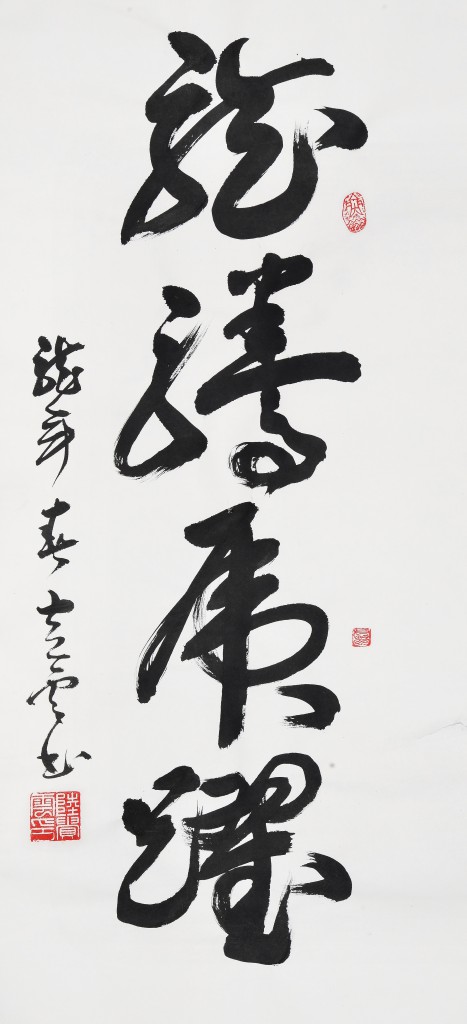 龍騰虎躍
龍年春雲书